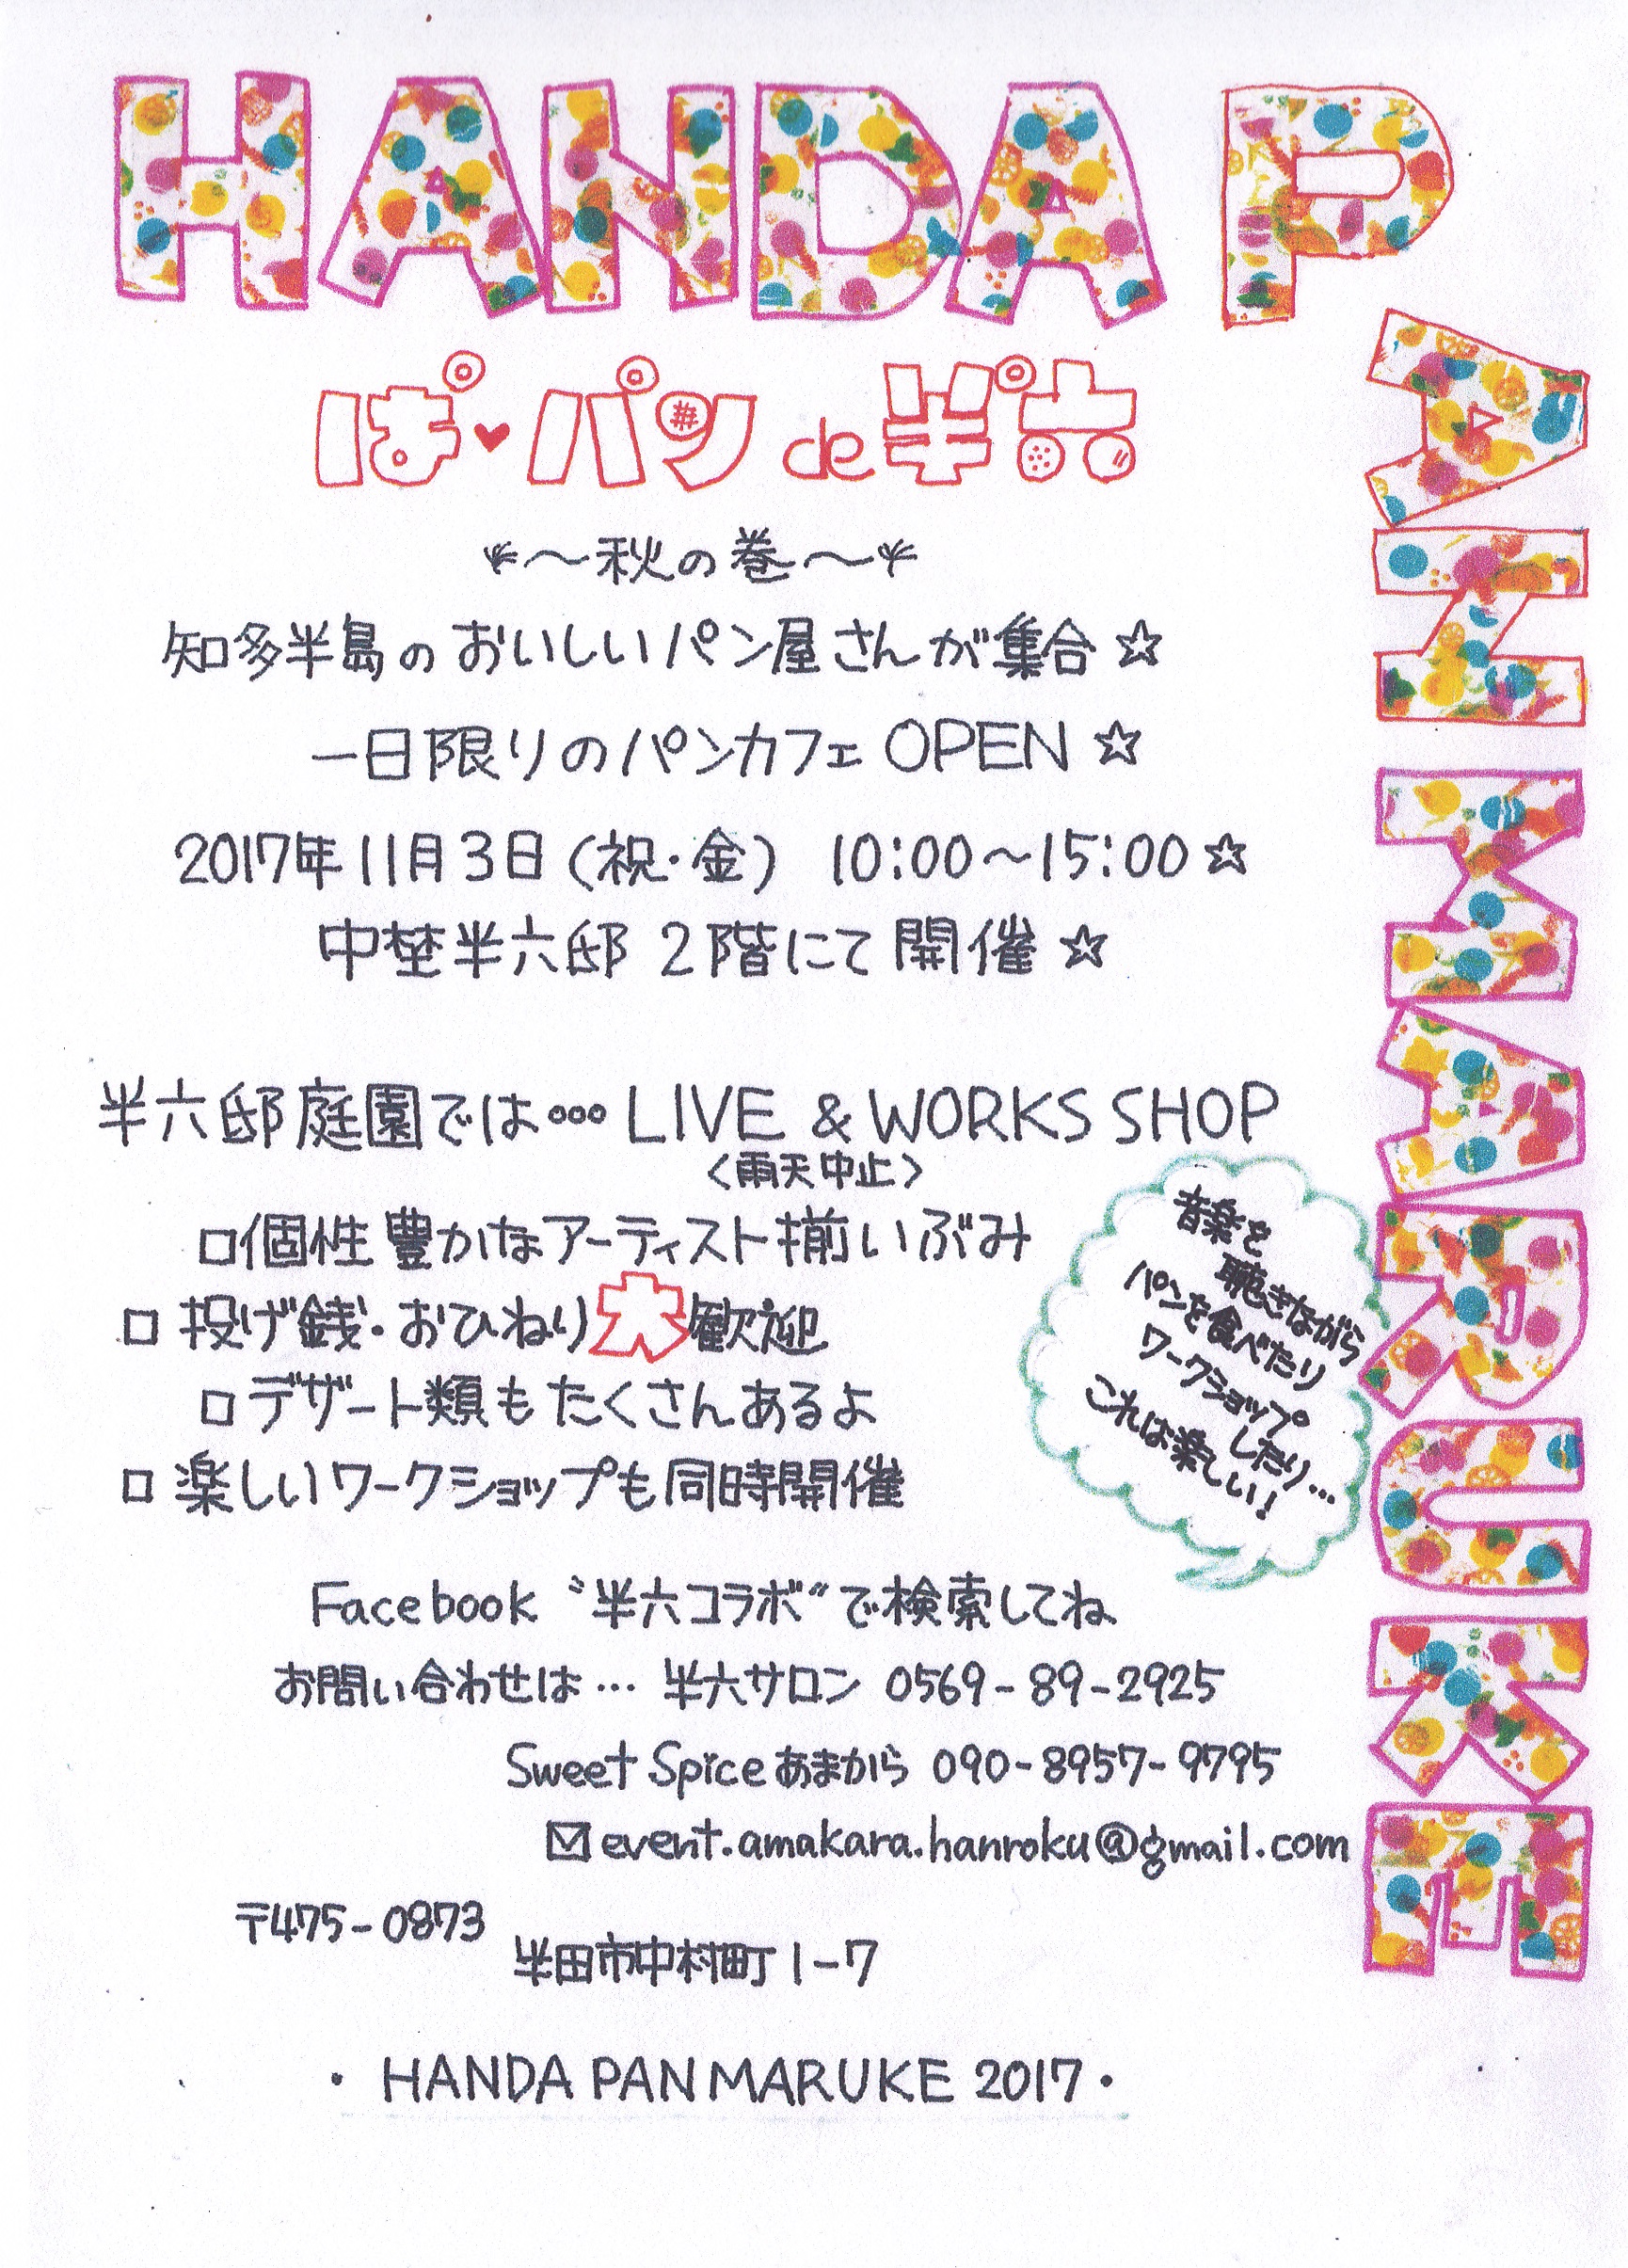 HANDA PAN MARUKE
ぱ♥パン de 半六
～秋の巻～
知多半島のおいしいパン屋さんが集合☆
一日限りのパンカフェ OPEN ☆
2017年11月3日(祝・金) 10:00～15:00☆
中埜半六邸 2階にて開催☆
半六邸庭園では… LIVE & WORKS SHOP
〈雨天中止〉
□個性豊かなアーティスト揃いぶみ
□投げ銭・おひねり大歓迎
□デザート類もたくさんあるよ
□楽しいワークショップも同時開催
音楽を
聴きながら
パンを食べたり
ワークショップ
したり…
これは楽しい!
Facebook〝半六コラボ〟で検索してね
お問い合わせは… 半六サロン 0569-89-2925
Sweet Spice あまから 090-8957-9795
✉event.amakara.hanroku@gmail.com
〒475-0873
半田市中村町1-7
・HANDA PAN MARUKE 2017・